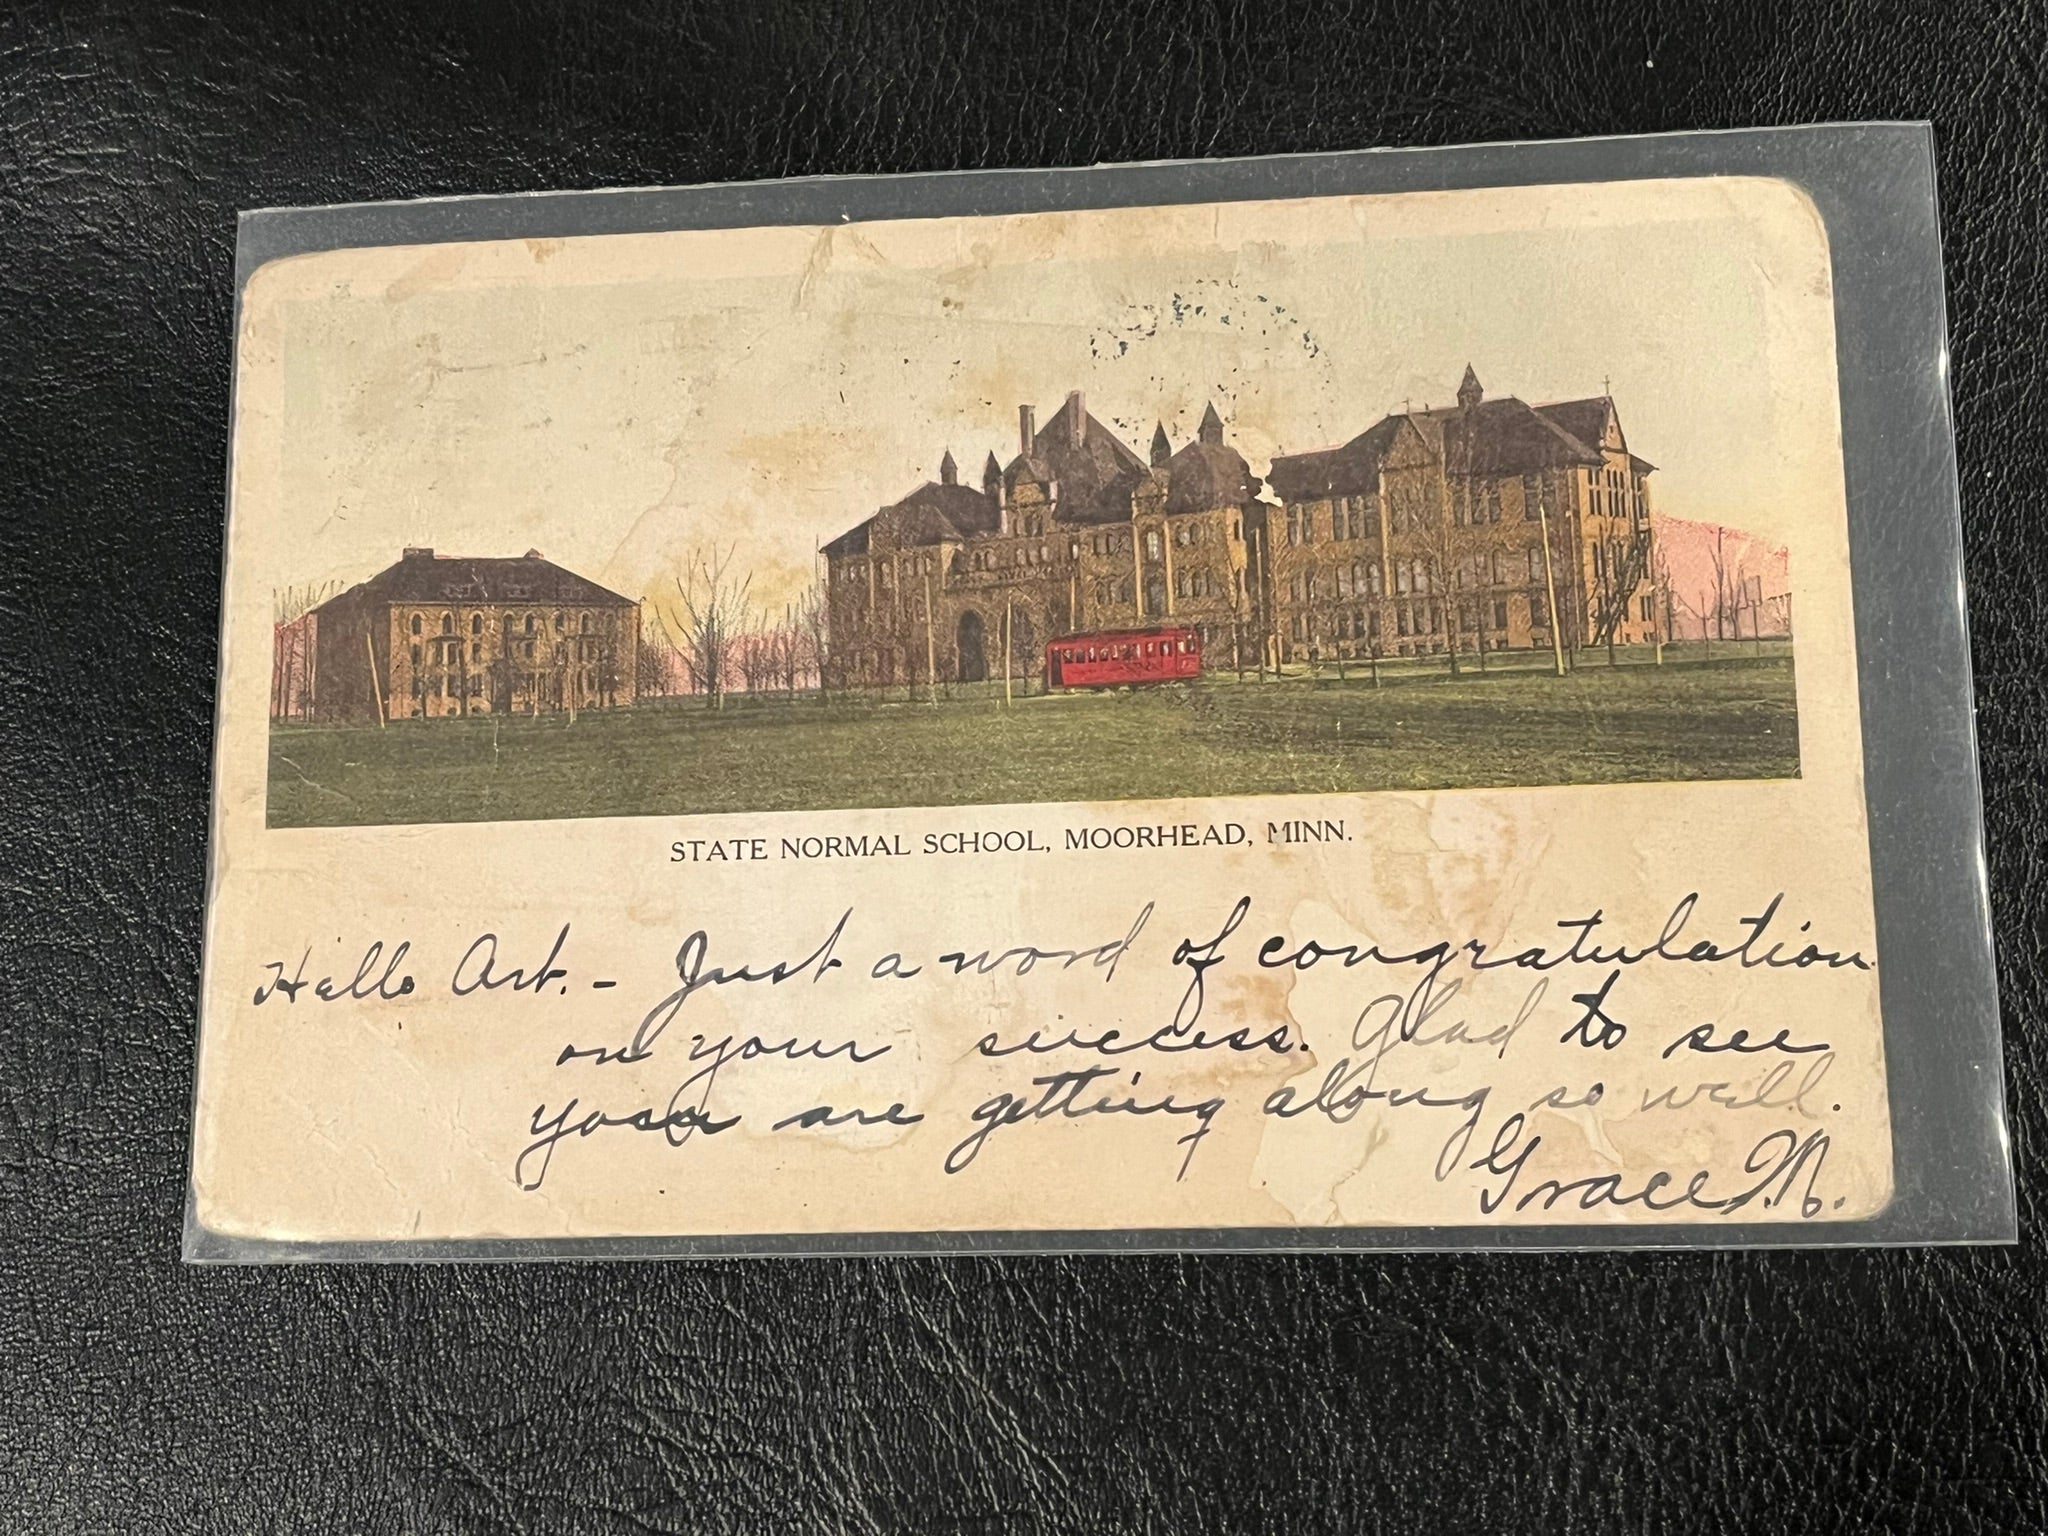 STATE NORMAL SCHOOL, MOORHEAD, MINN.
Hello Art. - Just a word of congratulation
on your success. Glad to see
you are getting along so well.
Grace M.